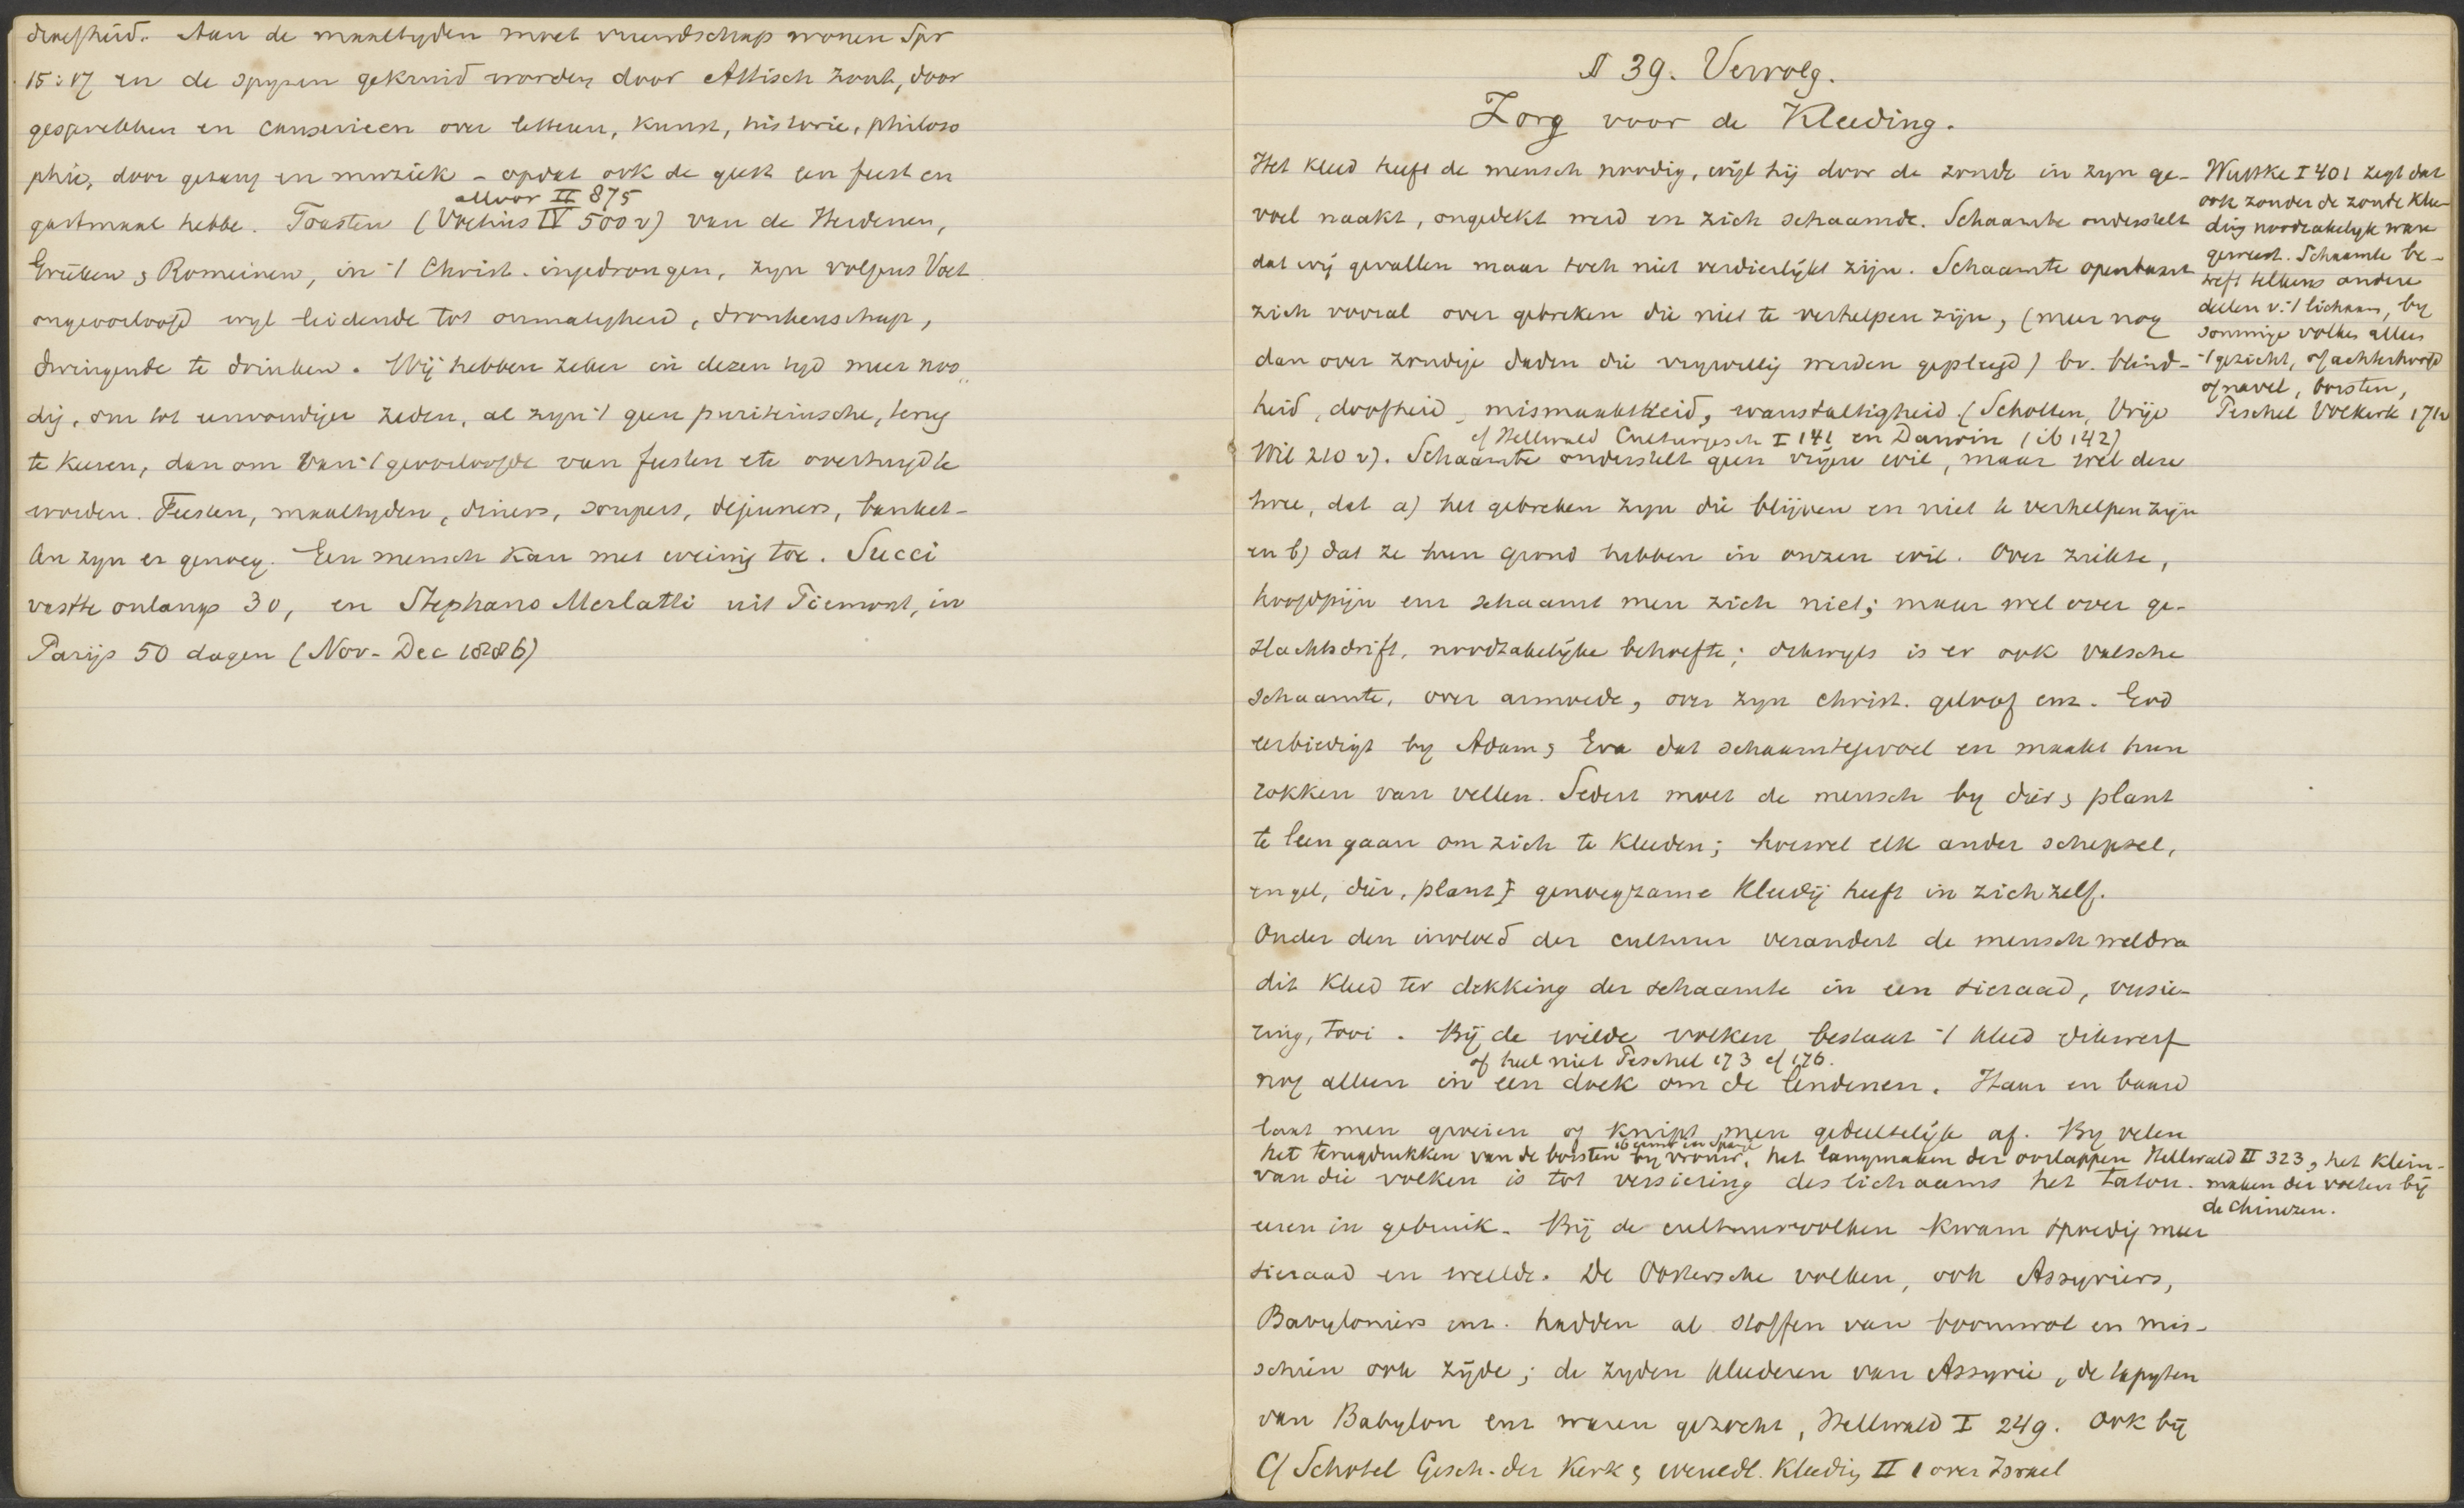 droefheid. Aan de maaltyden moet vriendschap wonen Spr
15:17 en de spyzen gekruid worden door Attisch zout, door
gesprekken en causerieen over letteren, kunst, historie, philoso
phie, door gezang en muziek - opdat ook de geest een feest en
allvor II 875
gastmaal hebbe. Toasten (Voetius IV 500 v) van de Heidenen,
Grieken & Romeinen, in 't Christ. ingedrongen, zyn volgens Voet
ongeoorloofd wyl leidende tot onmatigheid, dronkenschap,
dwingende te drinken. Wij hebben zeker in dezen tyd meer noo
dig, om tot eenvoudiger zeden, al zyn 't geen puriteinsche, terug
te keeren, dan om van 't geoorloofde van feesten etc overtuigd te
worden. Feesten, maaltyden, diners, soupers, dejeuners, banket-
ten zyn er genoeg. Een mensch kan met weinig toe. Succi
vastte onlangs 30, en Stephano Merlatti uit Piemont, in
Parijs 50 dagen (Nov-Dec 1886)
§ 39. Vervolg.
Zorg voor de Kleeding.
Het kleed heeft de mensch noodig, wijl hij door de zonde in zyn ge-
voel naakt, ongedekt werd en zich schaamde. Schaamte onderstelt
dat wij gevallen maar toch niet verdierlijkt zijn. Schaamte openbaart
zich vooral over gebreken die niet te verhelpen zijn, (meer nog
dan over zondige daden die vrywillig werden gepleegd) bv. blind-
heid, doofheid, mismaaktheid, wanstaltigheid. (Scholten, Vrije
cf Hellwald Culturgesch I 141 en Darwin (ib 142)
Wil 210 v). Schaamte onderstelt geen vrijen wil, maar wel deze
twee, dat a) het gebreken zyn die blijven en niet te verhelpen zijn
en b) dat ze hun grond hebben in onzen wil. Over ziekte,
hoofdpijn enz schaamt men zich niet; maar wel over ge-
slachtsdrift, noodzakelijke behoefte; dikwyls is er ook valsche
schaamte, over armoede, over zyn christ. geloof enz. God
eerbiedigt by Adam & Eva dat schaamtegevoel en maakt hun
rokken van vellen. Sedert moet de mensch by dier & plant
te leen gaan om zich te kleeden; hoewel elk ander schepsel,
engel, dier, plant genoegzame kleedij heeft in zichzelf.
Onder den invloed der cultuur verandert de mensch weldra
dit kleed ter dekking der schaamte in een sieraad, versie-
ring, tooi. Bij de wilde volken bestaat 't kleed dikwerf
of heel niet Peschel 173 cf 176.
nog alleen in een doek om de lendenen. Haar en baard
laat men groeien of knipt men gedeeltelijk af. By velen
het terugdrukken van de borsten by vrouw, het langmaken der oorlappen Hellwald II 323, het klein-
van die volken is tot versiering des lichaams het tatou-
maken der voeten bij
de Chinezen.
eeren in gebruik. Bij de cultuurvolken kwam spoedig meer
sieraad en weelde. De Oostersche volken, ook Assyriers,
Babyloniers enz. hadden al stoffen van boomwol en mis-
schien ook zijde; de zyden kleederen van Assyrie, de tapyten
van Babylon enz waren gezocht, Hellwald I 249. Ook bij
Cf Schotel Gesch. der Kerk & wereldl. Kleeding II 1 over Israel
Wuttke I 401 zegt dat
ook zonder de zonde klee-
ding noodzakelyk ware
geweest. Schaamte be-
treft telkens andere
deelen v. 't lichaam, by
sommige volken alleen
't gezicht, of achterhoofd
of navel, borsten,
Peschel Volkerk 171v